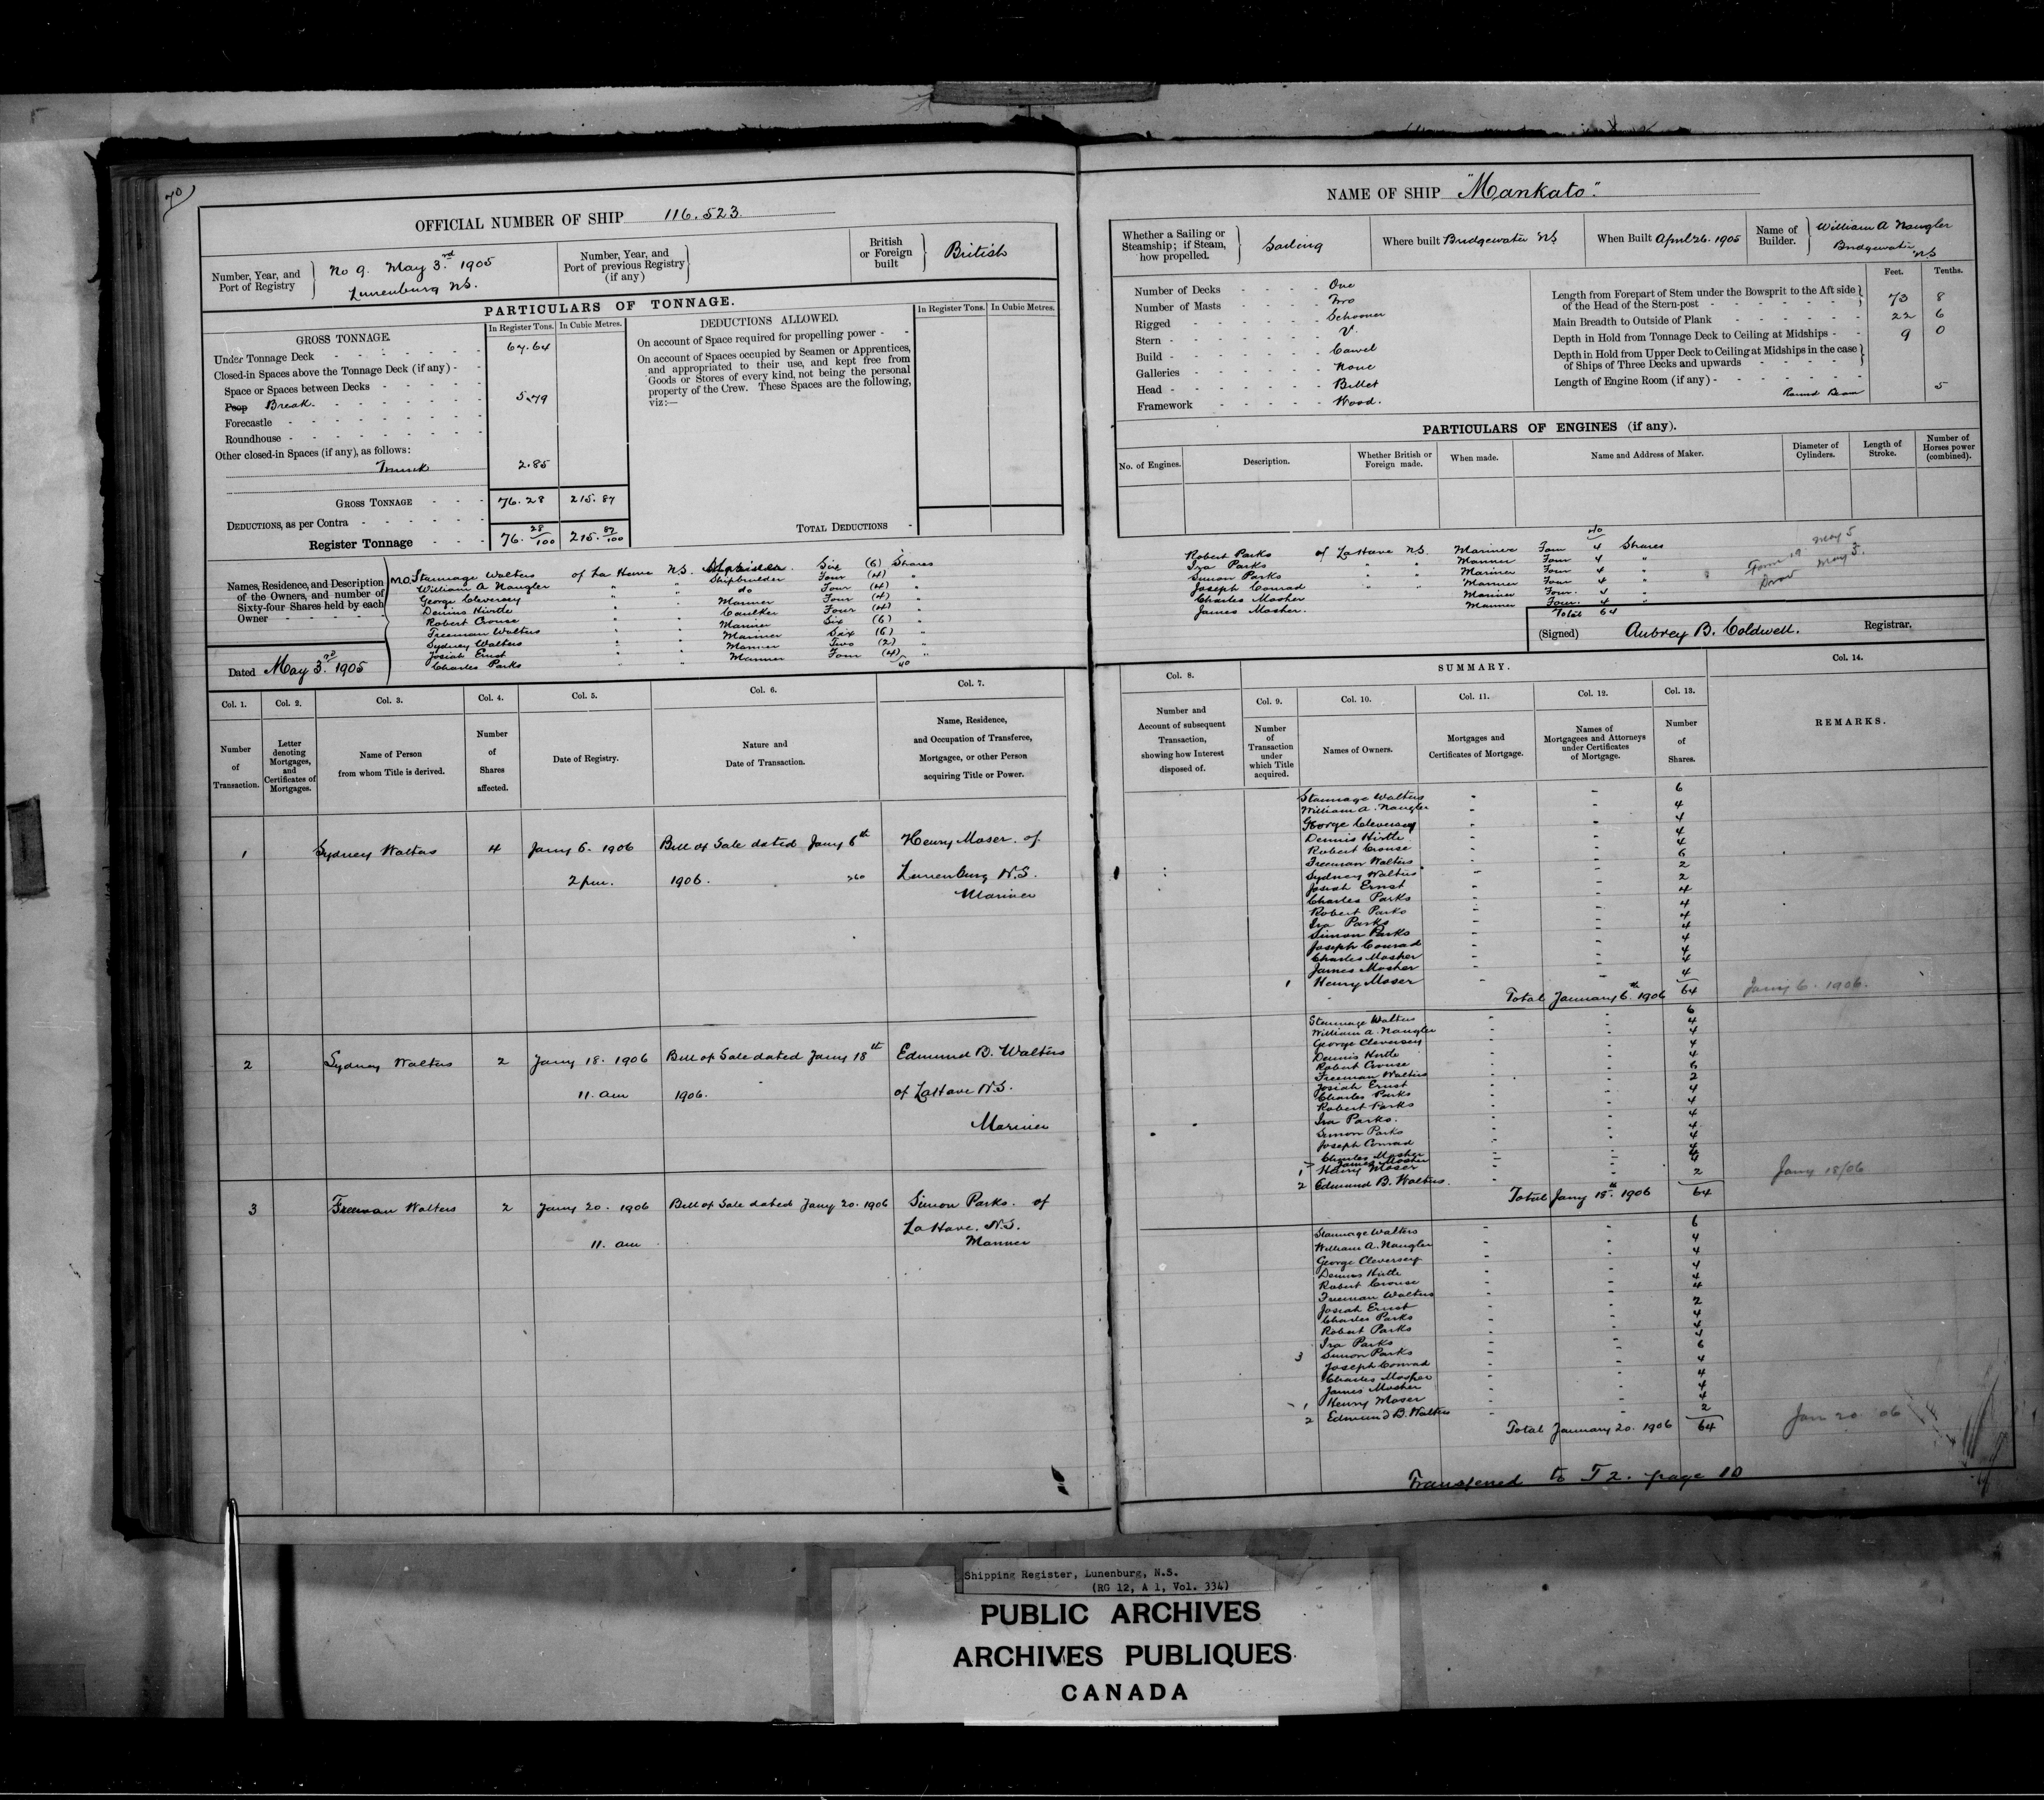 70
OFFICIAL NUMBER OF SHIP 116.523.
Number, Year, and Port of Registry } No 9. May 3rd. 1905 Lunenburg N.S.
Number, Year, and Port of previous Registry (if any) }
British or Foreign built } British
PARTICULARS OF TONNAGE.
GROSS TONNAGE.
In Register Tons. In Cubic Metres.
Under Tonnage Deck 67.64
Closed-in Spaces above the Tonnage Deck (if any)
Space or Spaces between Decks
Poop Break. 5.79
Forecastle
Roundhouse
Other closed-in Spaces (if any), as follows:
Trunk 2.85
GROSS TONNAGE 76.28 215.87
DEDUCTIONS, as per Contra
Register Tonnage 76. 28/100 215. 87/100
DEDUCTIONS ALLOWED.
In Register Tons. In Cubic Metres.
On account of Space required for propelling power
On account of Spaces occupied by Seamen or Apprentices, and appropriated to their use, and kept free from Goods or Stores of every kind, not being the personal property of the Crew. These Spaces are the following, viz:—
TOTAL DEDUCTIONS
Names, Residence, and Description of the Owners, and number of Sixty-four Shares held by each Owner
M.O. Stannage Walters of La Have N.S. Six (6) Shares
William A Naugler " " Shipbuilder Four (4) "
George Cleversey " " do Four (4) "
Dennis Hirtle " " Mariner Four (4) "
Robert Crouse " " Caulker Four (4) "
Freeman Walters " " Mariner Six (6) "
Sydney Walters " " Mariner Six (6) "
Josiah Ernst " " Mariner Two (2) "
Charles Parks " " Mariner Four (4) "
40
Dated May 3rd. 1905
Col. 1. Col. 2. Col. 3. Col. 4. Col. 5. Col. 6. Col. 7.
Number of Transaction.
Letter denoting Mortgages, and Certificates of Mortgages.
Name of Person from whom Title is derived.
Number of Shares affected.
Date of Registry.
Nature and Date of Transaction.
Name, Residence, and Occupation of Transferee, Mortgagee, or other Person acquiring Title or Power.
1 Sydney Walters 4 Jany 6. 1906 Bill of Sale dated Jany 6th Henry Moser. of
2 pm. 1906. Lunenburg N.S.
Mariner
2 Sydney Walters 2 Jany 18. 1906 Bill of Sale dated Jany 18th Edmund B. Walters
11. am 1906. of LaHave N.S.
Mariner
3 Freeman Walters 2 Jany 20. 1906 Bill of Sale dated Jany 20. 1906 Simon Parks. of
11. am LaHave. N.S.
Mariner
NAME OF SHIP "Mankato".
Whether a Sailing or Steamship; if Steam, how propelled. } Sailing
Where built Bridgewater NS
When Built April 26. 1905
Name of Builder. } William A Naugler Bridgewater NS
Number of Decks One
Number of Masts Two
Rigged Schooner
Stern V.
Build Carvel
Galleries None
Head Billet
Framework Wood.
Feet. Tenths.
Length from Forepart of Stem under the Bowsprit to the Aft side of the Head of the Stern-post 73 8
Main Breadth to Outside of Plank 22 6
Depth in Hold from Tonnage Deck to Ceiling at Midships 9 0
Depth in Hold from Upper Deck to Ceiling at Midships in the case of Ships of Three Decks and upwards
Length of Engine Room (if any)
Round Beam 5
PARTICULARS OF ENGINES (if any).
No. of Engines. Description. Whether British or Foreign made. When made. Name and Address of Maker. Diameter of Cylinders. Length of Stroke. Number of Horses power (combined).
40
Robert Parks of LaHave N.S. Mariner Four 4 Shares
Ira Parks " " Mariner Four 4 "
Simon Parks " " Mariner Four 4 "
Joseph Conrad " " Mariner Four 4 "
Charles Mosher Mariner Four. 4 "
James Mosher. Mariner Four. 4 "
Total 64
Form 19 May 5
May 3.
(Signed) Aubrey B. Coldwell. Registrar.
Col. 8. SUMMARY. Col. 14.
Col. 9. Col. 10. Col. 11. Col. 12. Col. 13.
Number and Account of subsequent Transaction, showing how Interest disposed of.
Number of Transaction under which Title acquired.
Names of Owners.
Mortgages and Certificates of Mortgage.
Names of Mortgagees and Attorneys under Certificates of Mortgage.
Number of Shares.
REMARKS.
Stannage Walters 6
William A. Naugler 4
George Cleversey 4
Dennis Hirtle 4
Robert Crouse 4
Freeman Walters 6
Sydney Walters 2
Josiah Ernst 2
Charles Parks 4
Robert Parks 4
Ira Parks 4
Simon Parks 4
Joseph Conrad 4
Charles Mosher 4
James Mosher 4
1 Henry Moser 4
Total January 6th. 1906 64 Jany 6. 1906.
Stannage Walters 6
William A. Naugler 4
George Cleversey 4
Dennis Hirtle 4
Robert Crouse 4
Freeman Walters 6
Josiah Ernst 2
Charles Parks 4
Robert Parks 4
Ira Parks. 4
Simon Parks 4
Joseph Conrad 4
Charles Mosher 4
James Mosher 4
1 Henry Moser 4
2 Edmund B. Walters. 2
Total Jany 18th. 1906 64 Jany 18/06
Stannage Walters 6
William A. Naugler 4
George Cleversey 4
Dennis Hirtle 4
Robert Crouse 4
Freeman Walters 4
Josiah Ernst 2
Charles Parks 4
Robert Parks 4
Ira Parks 4
3 Simon Parks 6
Joseph Conrad 4
Charles Mosher 4
James Mosher 4
1 Henry Moser 4
2 Edmund B. Walters 2
Total January 20. 1906 64 Jan 20 06
Transferred to T 2. page 10
Shipping Register, Lunenburg, N.S.
(RG 12, A 1, Vol. 334)
PUBLIC ARCHIVES
ARCHIVES PUBLIQUES
CANADA